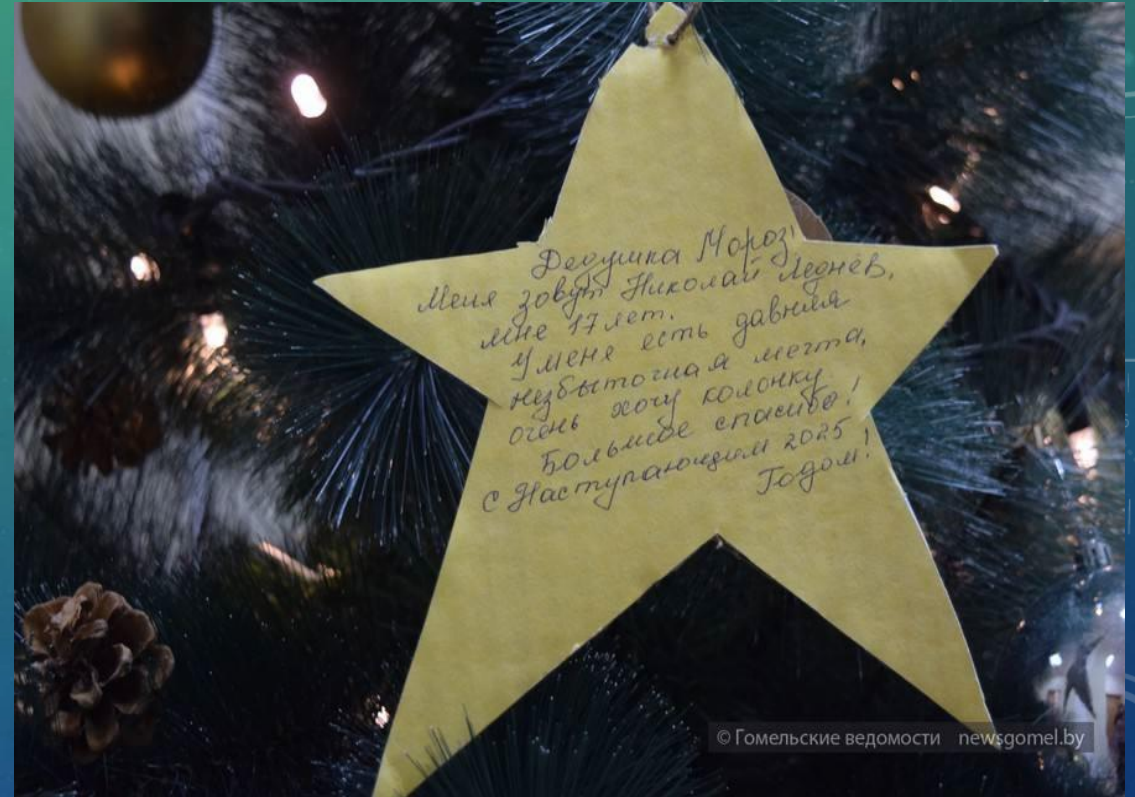 Дедушка Мороз!
Меня зовут Николай Леднёв,
мне 17 лет.
У меня есть давняя
незбыточная мечта,
очень хочу колонку
Большое спасибо!
с Наступающим 2025
Годом!
© Гомельские ведомости newsgomel.by